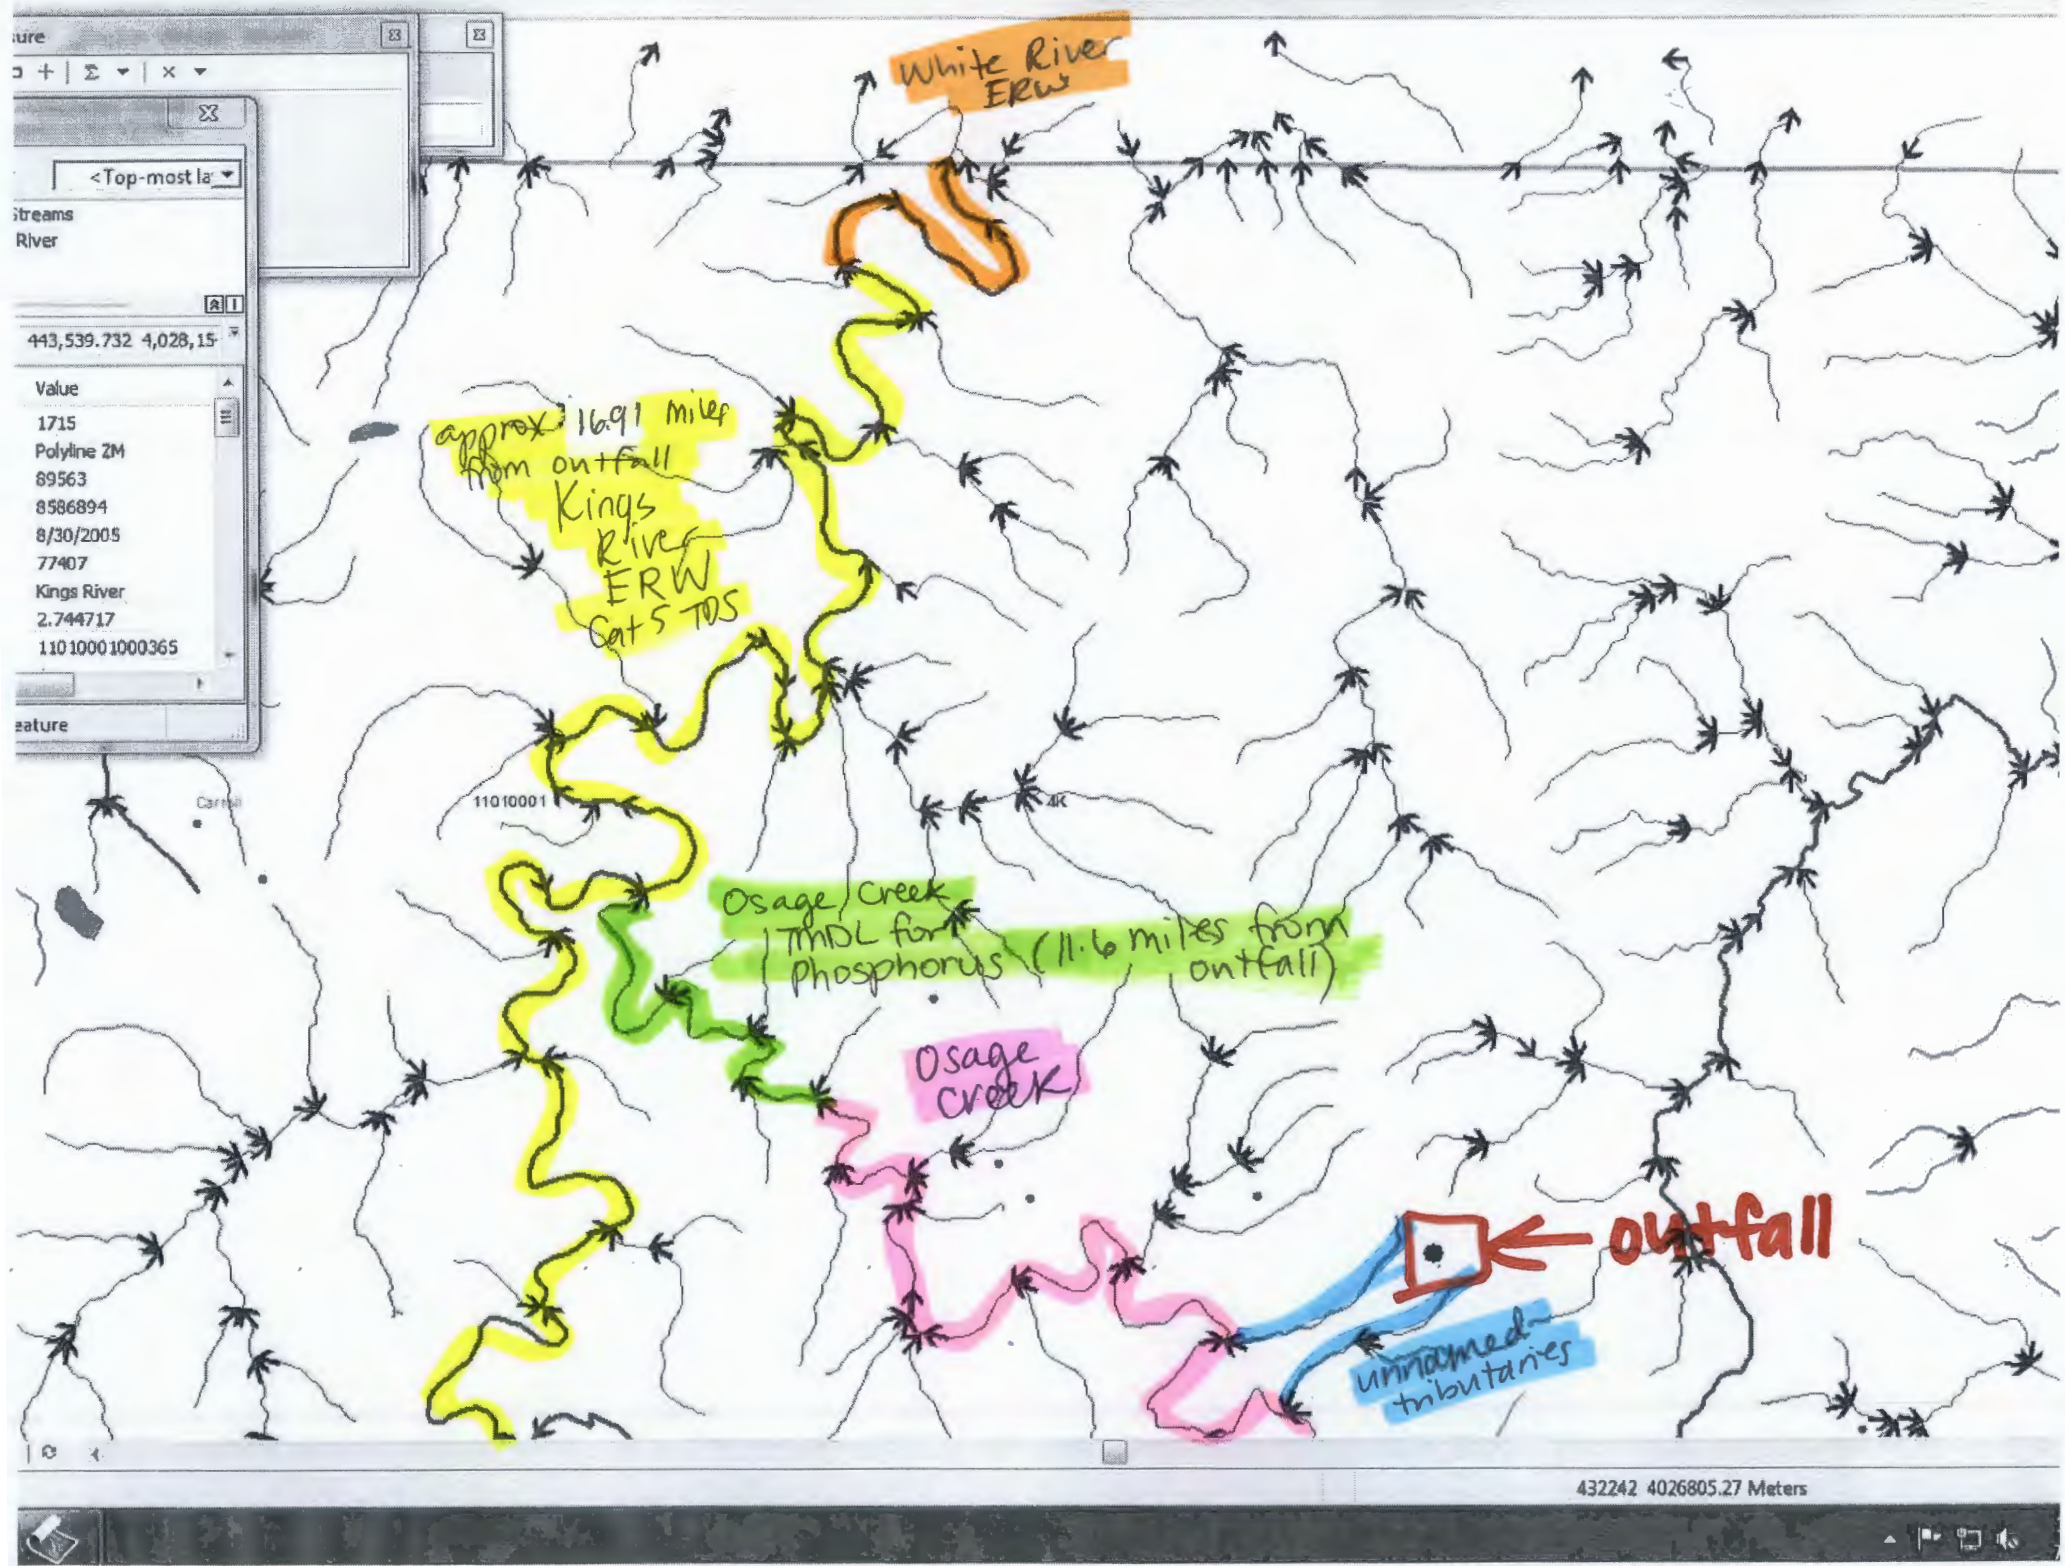 sure
Σ
<Top-most la
Streams
River
443,539.732 4,028,15
Value
1715
Polyline ZM
89563
8586894
8/30/2005
77407
Kings River
2.744717
11010001000365
eature
White River
ERW
approx 16.91 miles
from outfall
Kings
River
ERW
Cat 5 TDS
Carroll
11010001
4K
Osage Creek
TMDL for
Phosphorus (11.6 miles from
outfall)
Osage
Creek
outfall
unnamed
tributaries
432242 4026805.27 Meters